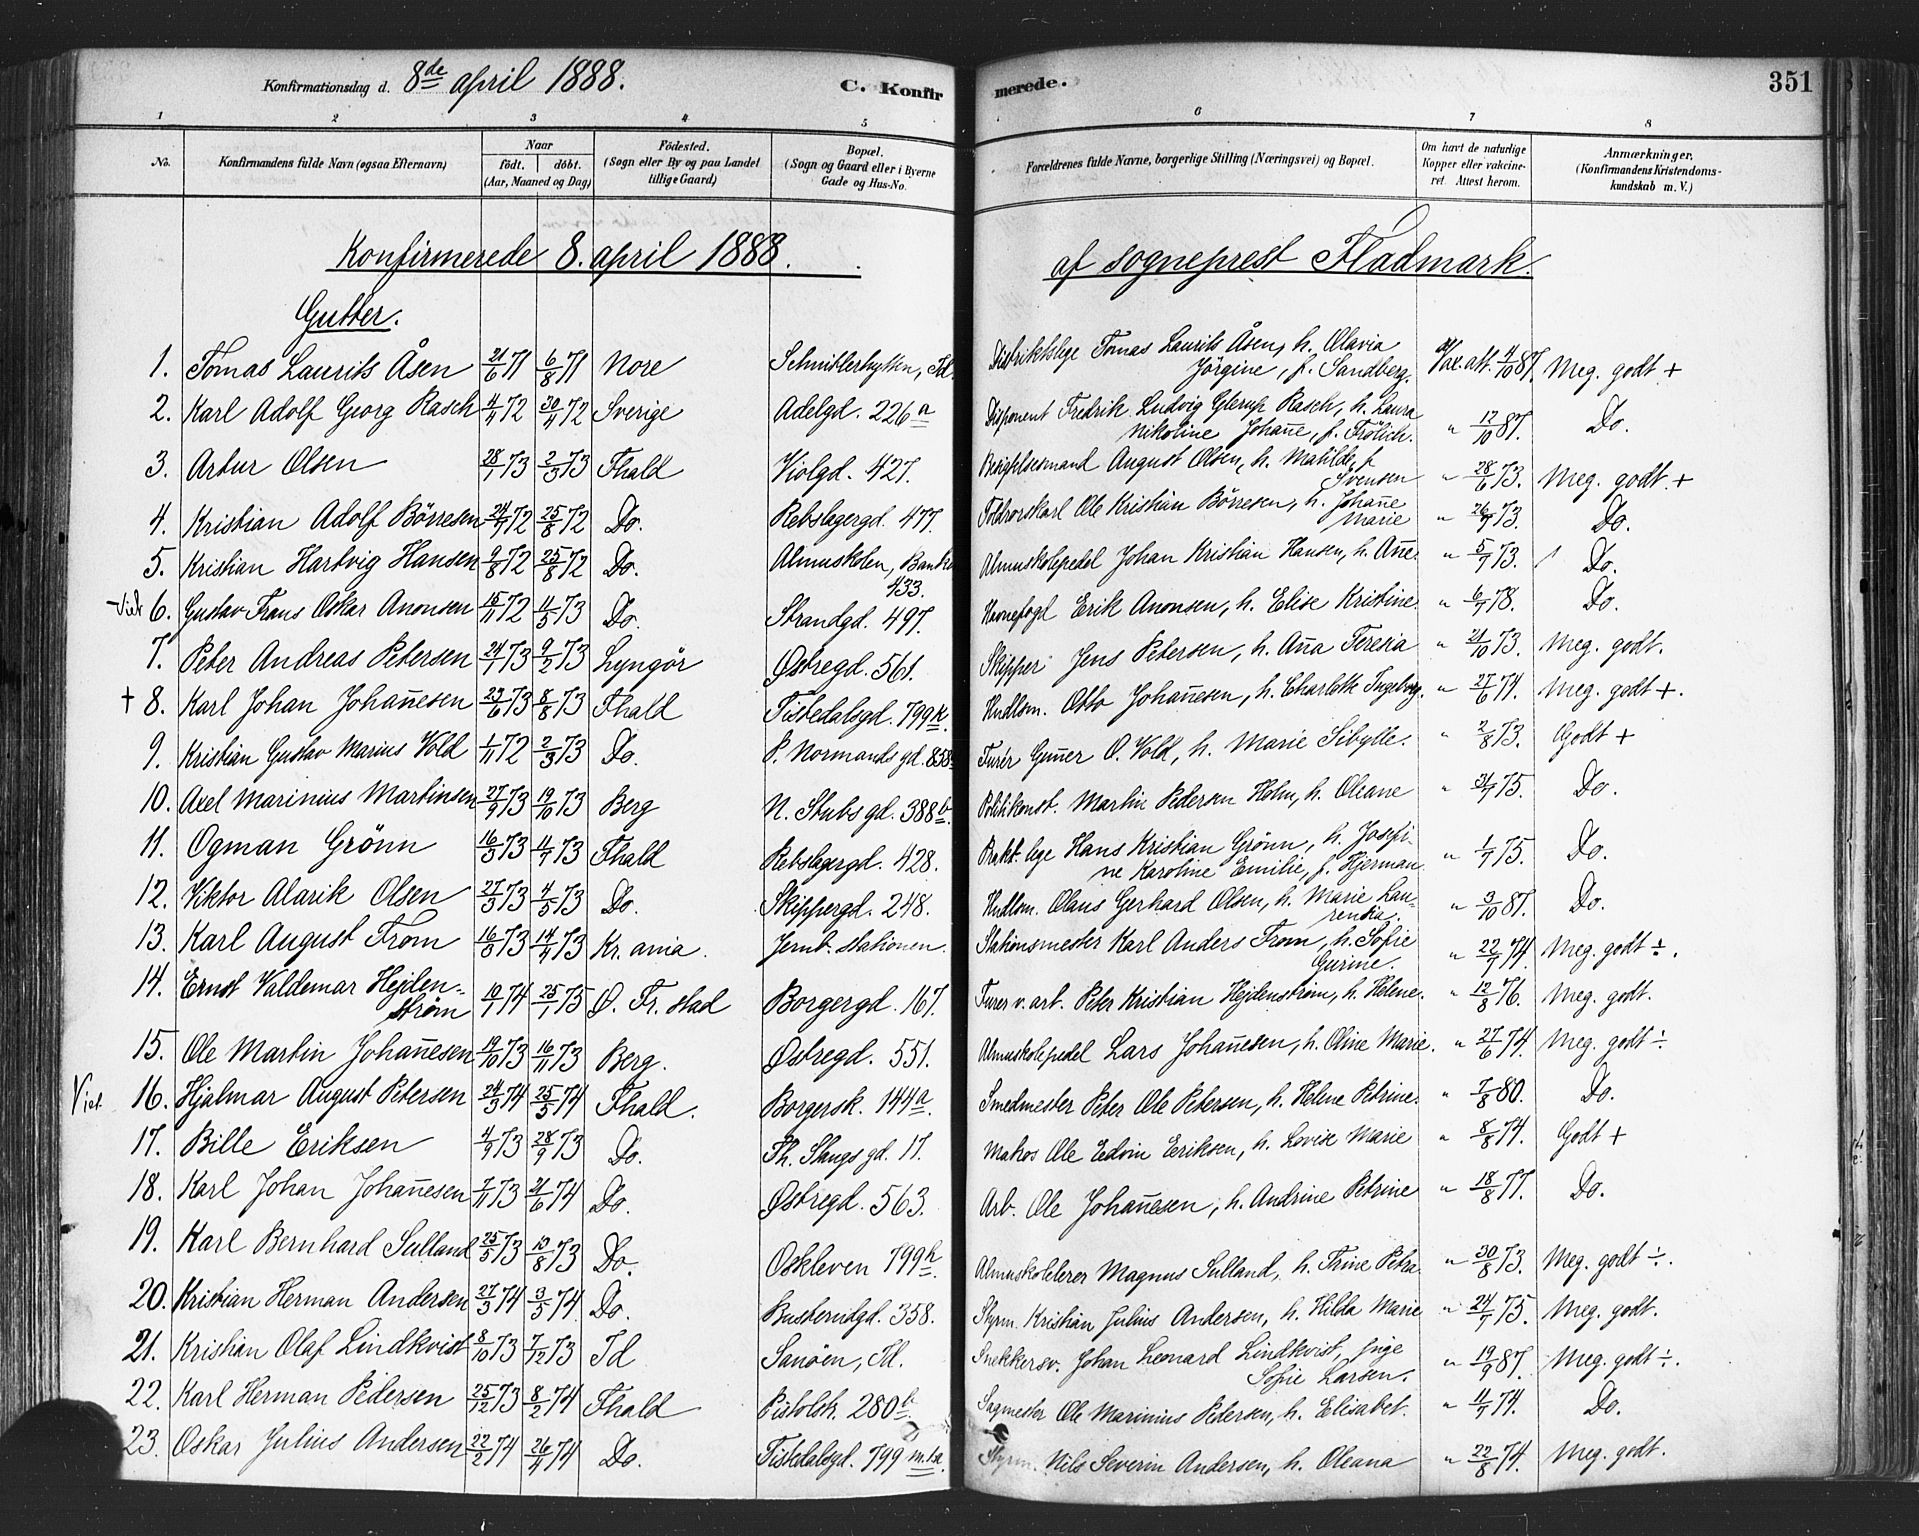 Konfirmationsdag d. 8de april 1888. C. Konfirmerede. 351
1 2 3 4 5 6 7 8
No. Konfirmandens fulde Navn (ogsaa Efternavn) Naar født. døbt. (Aar, Maaned og Dag) Fødested. (Sogn eller By og paa Landet tillige Gaard) Bopæl. (Sogn og Gaard eller i Byerne Gade og Hus-No. Forældrenes fulde Navne, borgerlige Stilling (Næringsvei) og Bopæl. Om havt de naturlige Kopper eller vakcineret. Attest herom. Anmærkninger. (Konfirmandens Kristendomskundskab m. V.)
Konfirmerede 8. april 1888. af sogneprest Fladmark.
Gutter.
1. Tomas Laurits Åsen 21/6 71 6/8 71 Nore Schmitlerhytten, Id. Distriktslege Tomas Laurits Åsen, h. Olavia Jörgine, f. Sandberg. Vax. att. 4/10 87. Meg. godt +
2. Karl Adolf Georg Rasch 4/4 72 30/4 72 Sverige Adelgd. 226 a Disponent Fredrik Ludvig Glerup Rasch, h. Laura Nikoline Johañe, f. Frölich. " 12/10 87. Do.
3. Artur Olsen 28/1 73 2/3 73 Fhald Violgd. 427. August Olsen, h. Matilde, f Svensen " 28/6 73. Meg. godt. +
4. Kristian Adolf Börresen 24/7 72 25/8 72 Do. Rebslagergd. 477. Toldrorskarl Ole Kristian Börresen, h. Johañe Marie " 26/7 73. Do.
5. Kristian Hartvig Hansen 9/8 72 25/8 72 Do. Almuskolen, 433. Almuskolepedel Johan Kristian Hansen, h. Añe. " 5/7 73. Do.
6. Gustav Frans Oskar Anonsen 15/11 72 11/5 73 Do. Strandgd. 497. Havnefogd Erik Anonsen, h. Elise Kristine. " 6/7 78. Do.
7. Peter Andreas Petersen 24/1 73 9/2 73 Lyngör Østregd. 561. Skipper Jens Petersen, h. Aña Teresia " 21/10 73. Meg. godt.
† 8. Karl Johan Johañesen 23/6 73 8/8 73 Fhald Tistedalsgd. 799 k. Hndlom. Otto Johañesen, h. Charlotte Ingeborg. " 27/6 74. Meg. godt +.
9. Kristian Gustav Marius Vold 1/11 72 2/3 73 Do. P. Normands gd. 858 Turér Guñer O. Vold, h. Marie Sibylle. " 2/8 73. Godt +
10. Axel Marinius Martinsen 27/9 73 19/10 73 Berg N. Stubs gd. 388 b. Politikonst. Martin Pedersen Holm, h. Oleane " 31/7 75. Do.
11. Ogman Grönn 16/3 73 11/7 73 Fhald Rebslagergd. 428. Prakt. lege Hans Kristian Grönn, h. Josefine Karoline Emilie, f. Hjerman " 1/7 75. Do.
12. Viktor Alarik Olsen 27/3 73 4/5 73 Do. Skippergd. 248. Hndlom. Olaus Gerhard Olsen, h. Marie Laurentia. " 3/10 87. Do.
13. Karl August From 16/3 73 14/4 73 Kr.ania. Jernb. stationen. Stationsmester Karl Anders From, h. Sofie Gurine. " 22/7 74. Meg. godt ÷.
14. Ernst Valdemar Hejdenström 19/1 74 25/1 75 Ø. Fr. stad Borgergd. 167. Turer v. arb. Peter Kristian Hejdenström, h. Helene. " 12/8 76. Meg. godt.
15. Ole Martin Johañesen 19/10 73 16/11 73 Berg. Østregd. 551. Almuskolepedel Lars Johañesen, h. Oline Marie. " 27/6 74. Meg. godt ÷
16. Hjalmar August Petersen 24/3 74 25/5 74 Fhald. Borgersk. 144 a. Smedmester Peter Ole Petersen, h. Helene Petrine. " 7/8 80. Do.
17. Bille Eriksen 4/9 73 28/9 73 Do. Th. Stangs gd. 17. Ole Edvin Eriksen, h. Lovise Marie " 8/8 74. Godt +
18. Karl Johan Johañesen 7/11 73 21/6 74 Do. Østregd. 563. Arb. Ole Johañesen, h. Andrine Petrine " 18/8 77. Do.
19. Karl Bernhard Sulland 25/5 73 10/8 73 Do. Oskleven 799 h. Almuskolelerer Magnus Sulland, h. Trine Petra " 30/8 73. Meg. godt ÷.
20. Kristian Herman Andersen 27/3 74 3/5 74 Do. Buskerudgd. 358. Styrm. Kristian Julius Andersen, h. Hilda Marie " 24/7 75. Meg. godt.
21. Kristian Olaf Lindkvist 8/10 73 7/12 73 Id Sanöen, Id. Snekkersv. Johan Leonard Lindkvist, pige Sofie Larsen. " 19/9 87. Meg. godt ÷.
22. Karl Herman Pedersen 25/12 73 8/2 74 Fhald Pistolsk. 280 b. Sagmester Ole Marinius Pedersen, h. Elisabet. " 11/7 74. Do.
23. Oskar Julius Andersen 22/2 74 26/4 74 Do. Tistedalsgd. 799 Styrm. Nils Severin Andersen, h. Oleana " 22/8 74. Meg. godt.